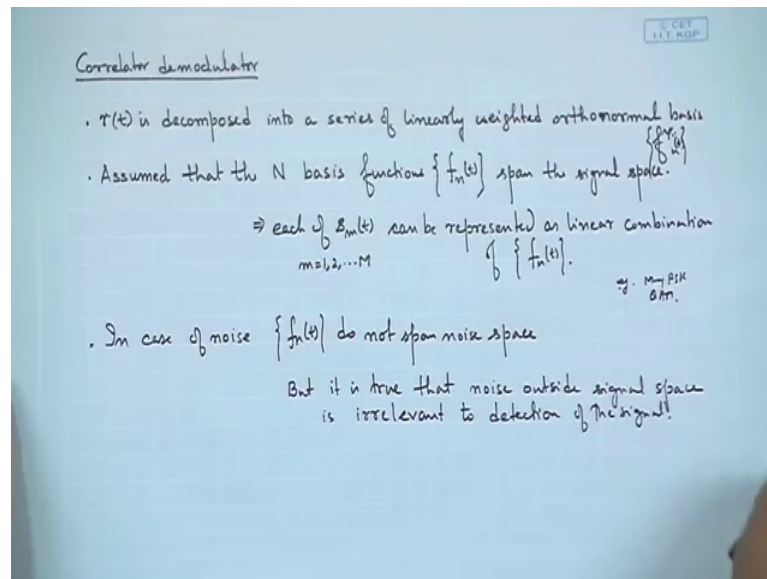 © CET
I.I.T. KGP
Correlator demodulator
. r(t) is decomposed into a series of linearly weighted orthonormal basis
{fn(t)}
. Assumed that the N basis functions {fn(t)} span the signal space.
⇒ each of Sm(t) can be represented as linear combination
m=1,2,...M
of {fn(t)}.
eg. M-ary PSK
QAM.
. In case of noise {fn(t)} do not span noise space
But it is true that noise outside signal space
is irrelevant to detection of the signal!